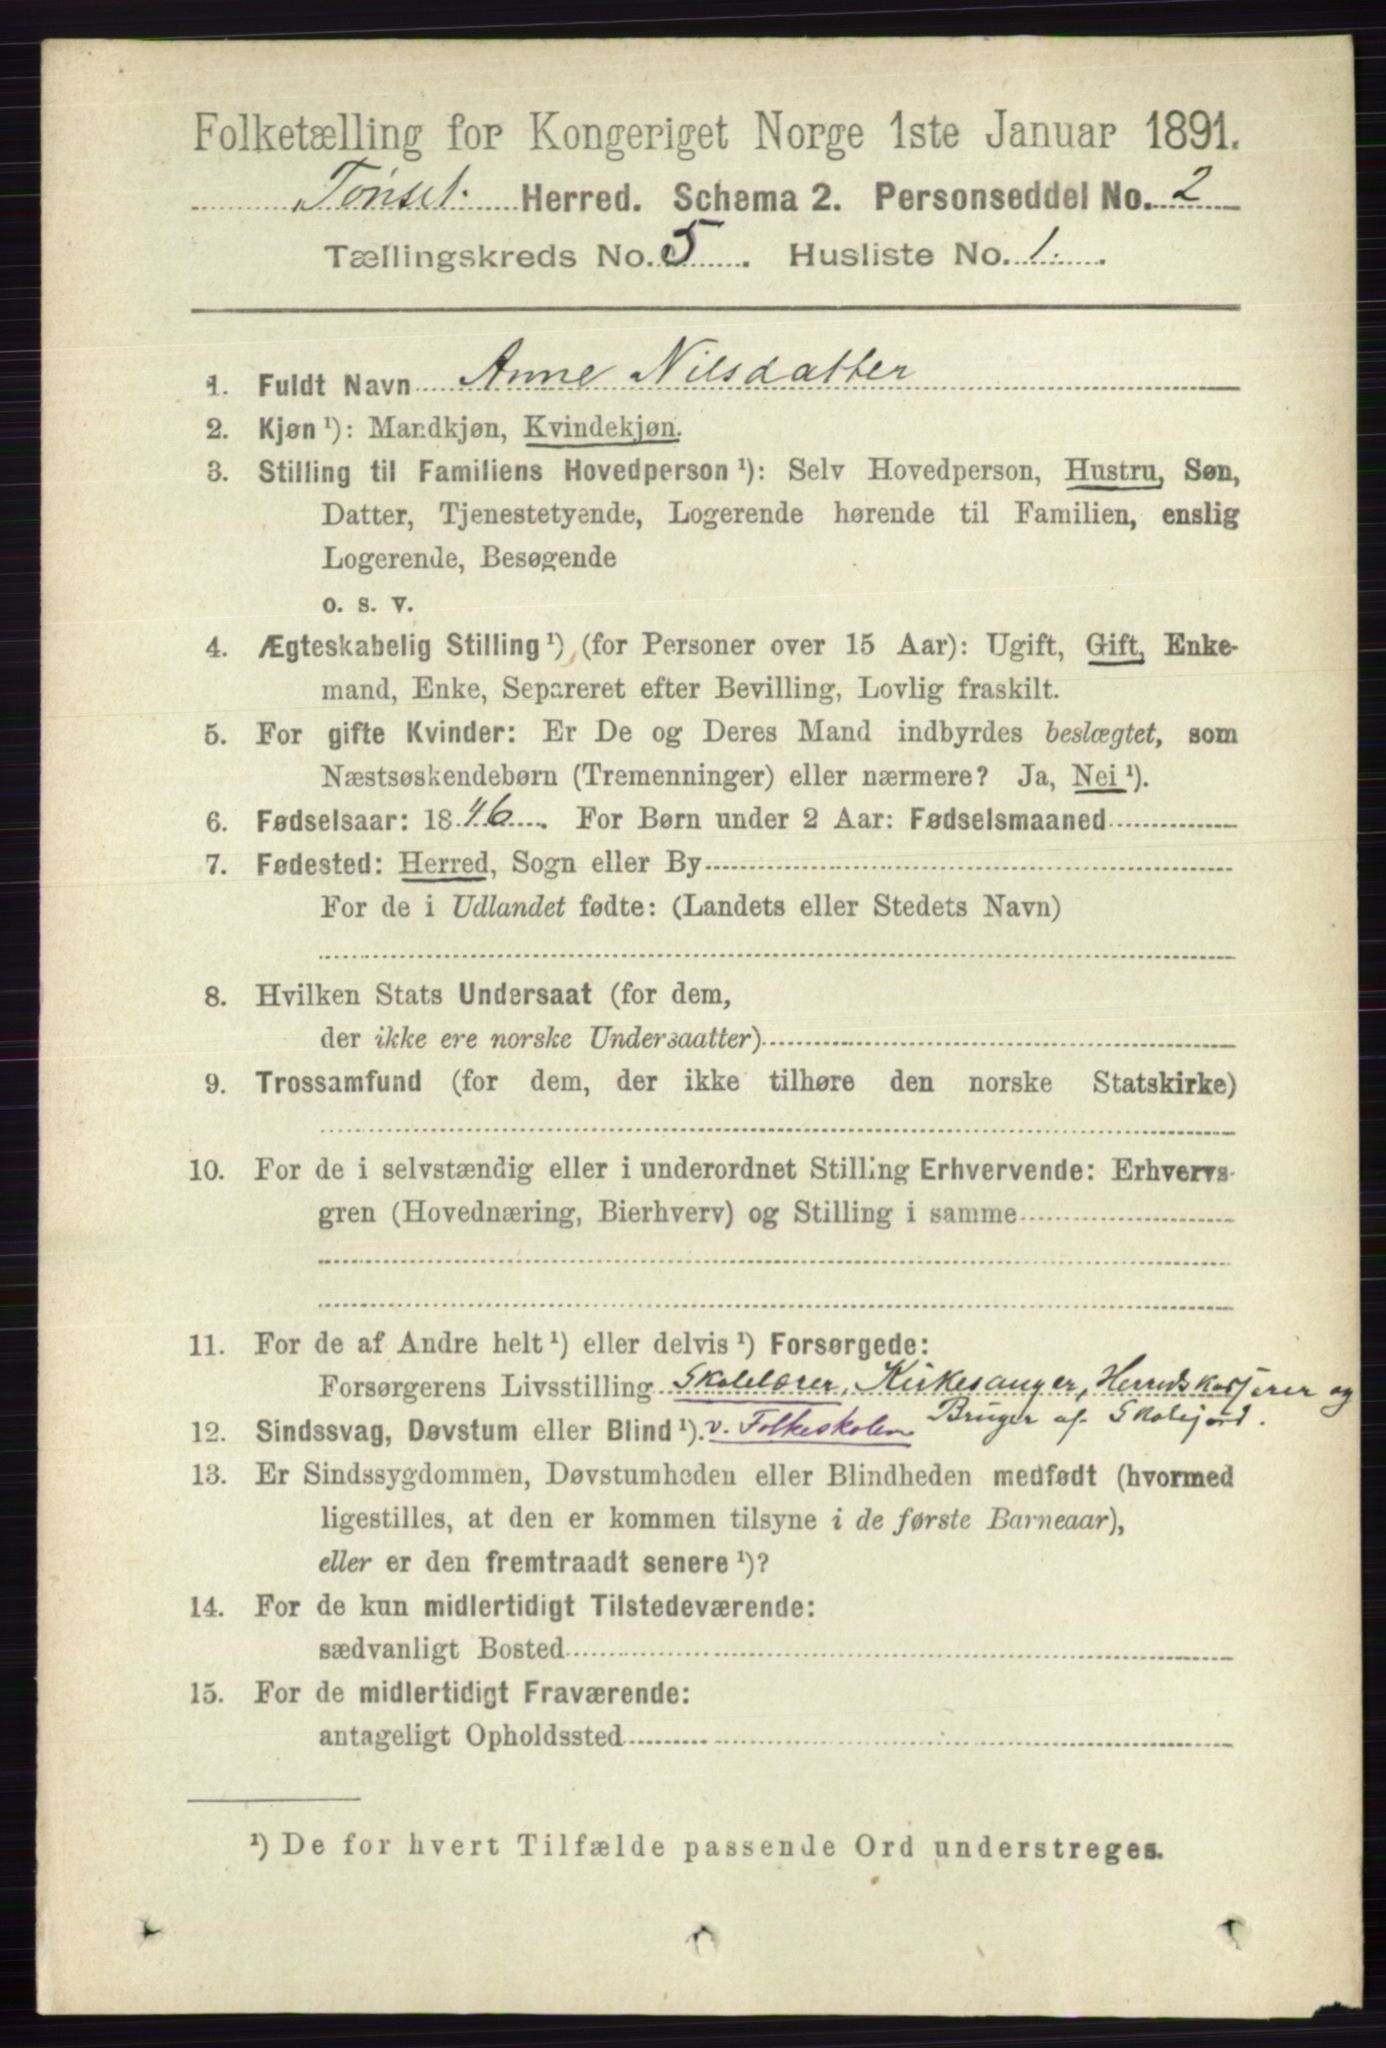 Folketælling for Kongeriget Norge 1ste Januar 1891.
Tønset. Herred. Schema 2. Personseddel No. 2
Tællingskreds No. 5. Husliste No. 1.
1. Fuldt Navn Anne Nilsdatter
2. Kjøn ¹): Mandkjøn, Kvindekjøn.
3. Stilling til Familiens Hovedperson ¹): Selv Hovedperson, Hustru, Søn,
Datter, Tjenestetyende, Logerende hørende til Familien, enslig
Logerende, Besøgende
o. s. v.
4. Ægteskabelig Stilling ¹) (for Personer over 15 Aar): Ugift, Gift, Enke-
mand, Enke, Separeret efter Bevilling, Lovlig fraskilt.
5. For gifte Kvinder: Er De og Deres Mand indbyrdes beslægtet, som
Næstsøskendebørn (Tremenninger) eller nærmere? Ja, Nei ¹).
6. Fødselsaar: 1846. For Børn under 2 Aar: Fødselsmaaned
7. Fødested: Herred, Sogn eller By
For de i Udlandet fødte: (Landets eller Stedets Navn)
8. Hvilken Stats Undersaat (for dem,
der ikke ere norske Undersaatter)
9. Trossamfund (for dem, der ikke tilhøre den norske Statskirke)
10. For de i selvstændig eller i underordnet Stilling Erhvervende: Erhvervs-
gren (Hovednæring, Bierhverv) og Stilling i samme
11. For de af Andre helt ¹) eller delvis ¹) Forsørgede:
Forsørgerens Livsstilling Skolelærer, Kirkesanger, Herredskasserer og
12. Sindssvag, Døvstum eller Blind ¹). v. Folkeskolen Bruger af Skolejord.
13. Er Sindssygdommen, Døvstumheden eller Blindheden medfødt (hvormed
ligestilles, at den er kommen tilsyne i de første Barneaar),
eller er den fremtraadt senere ¹)?
14. For de kun midlertidigt Tilstedeværende:
sædvanligt Bosted
15. For de midlertidigt Fraværende:
antageligt Opholdssted
¹) De for hvert Tilfælde passende Ord understreges.